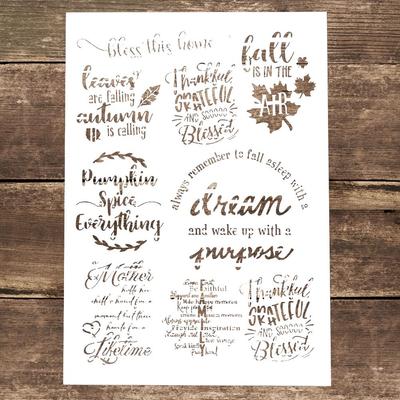 bless this home
fall
IS IN THE
AIR
leaves
are falling
autumn
is calling
Thankful
GRATEFUL
AND SOOOOO
Blessed
Pumpkin
Spice
Everything
always remember to fall asleep with a
dream
and wake up with a
purpose
A Mother
holds her
child's hand for a
moment but their
hearts for a
Lifetime
Be Faithful
Make happy memories
Provide Inspiration
Thankful
GRATEFUL
AND SOOOOO
Blessed